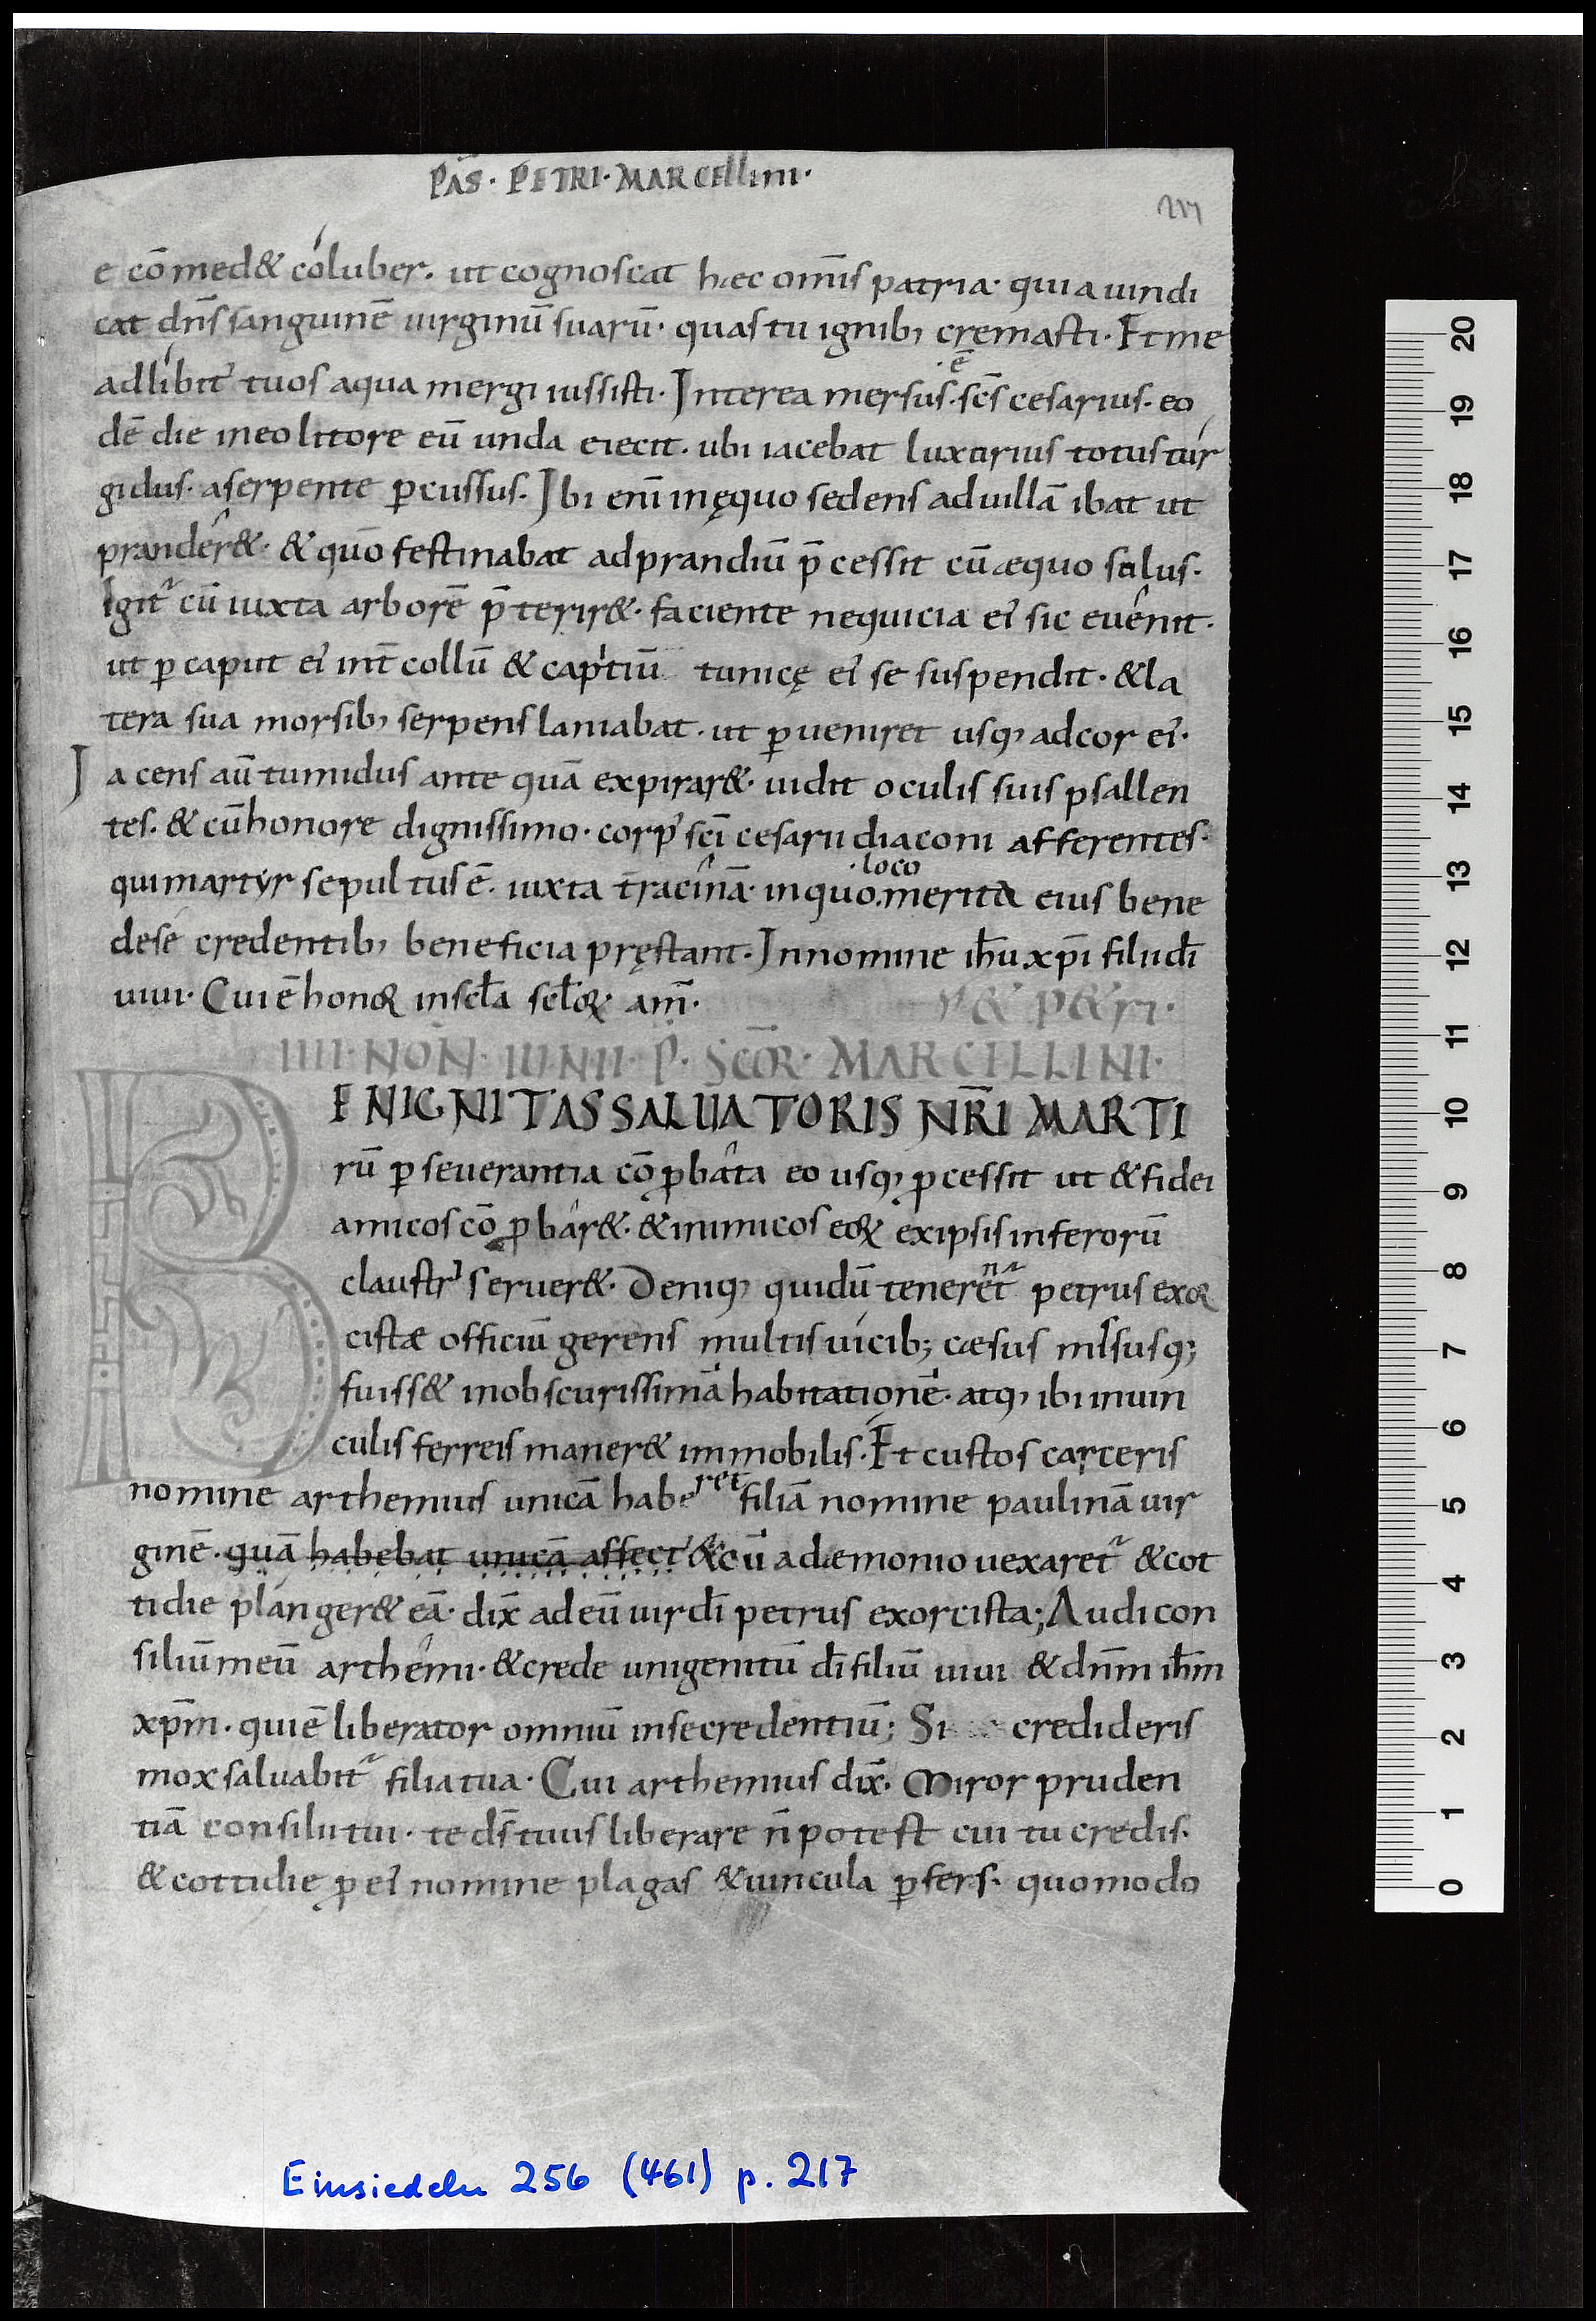 PAS̄· PETRI· MARCELLINI·
217
e cōmed& coluber. ut cognoscat haec om̄is patria· quia uindi
cat dn̄s sanguinē uirginū suarū· quas tu ignib; cremasti· Et me
adlibit' tuos aqua mergi iussisti· Interea mersus·ē· sc̄s cesarius· eo
dē die ineo litore eū unda eiecit· ubi iacebat luxurius totus tur
gidus· aserpente ꝑcussus· Ibi eni̅ inęquo sedens aduillā ibat ut
prander&· & quo festinabat adprandiū p̄cessit cū aequo solus·
Igit᷑ cū iuxta arborē p̄terir&· faciente nequicia ei' sic euenit·
ut ꝑ caput ei' int̄ collū & capitiū tunicę ei' se suspendit· & la
tera sua morsib; serpens laniabat· ut ꝑueniret usq; adcor ei'·
Iacens aū tumidus ante quā expirar&· uidit oculis suis psallen
tes· & cū honore dignissimo· corp' sc̄i cesarii diaconi afferentes·
qui martyr sepultus ē· iuxta tracinā· inquo· loco merita eius bene
dese credentib; beneficia pręstant· Innomine ih̄u xp̄i filii dī
uiui· Cui ē honoꝝ insc̄la sc̄loꝝ· am̄·
& P&RI·
IIII· NON̄· IUNII· P· SC̄OR· MARCELLINI·
BENIGNITAS SALUATORIS NR̄I MARTI
rū ꝑseuerantia cōꝓbata eo usq; ꝓcessit ut & fidei
amicos cōꝓbar&· & inimicos eoꝝ exipsis inferorū
claustr' seruer&· Deniq; quidū teneret᷑ petrus exoꝝ
cistae officiū gerens multis uicib; caesus missusq;
fuiss& inobscurissimā habitationē· atq; ibi inuin
culis ferreis maner& immobilis· Et custos carceris
nomine arthemius unicā haberet filiā nomine paulinā uir
ginē· quā habebat unicā affect' & cū adaemonio uexaret᷑ & cot
tidie planger& eā· dix̄ adeū uir dī petrus exorcista; Audi con
siliū meū arthemi· & crede unigenitū dī filiū uiui & dn̄m ih̄m
xp̄m· qui ē liberator omniū inse credentiū; Si credideris
mox saluabit᷑ filia tua· Cui arthemius dix̄· Miror pruden
tiā consilii tui· te ds̄ tuus liberare n̄ potest cui tu credis·
& cottidie ꝓ ei' nomine plagas & uincula ꝑfers· quomodo
Einsiedeln 256 (461) p. 217
20
19
18
17
16
15
14
13
12
11
10
9
8
7
6
5
4
3
2
1
0